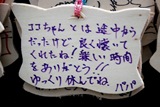 ココちゃんとは途中から
だったけど、良く懐いて
くれたね！楽しい時間
をありがとう！
ゆっくり休んでね。
パパより